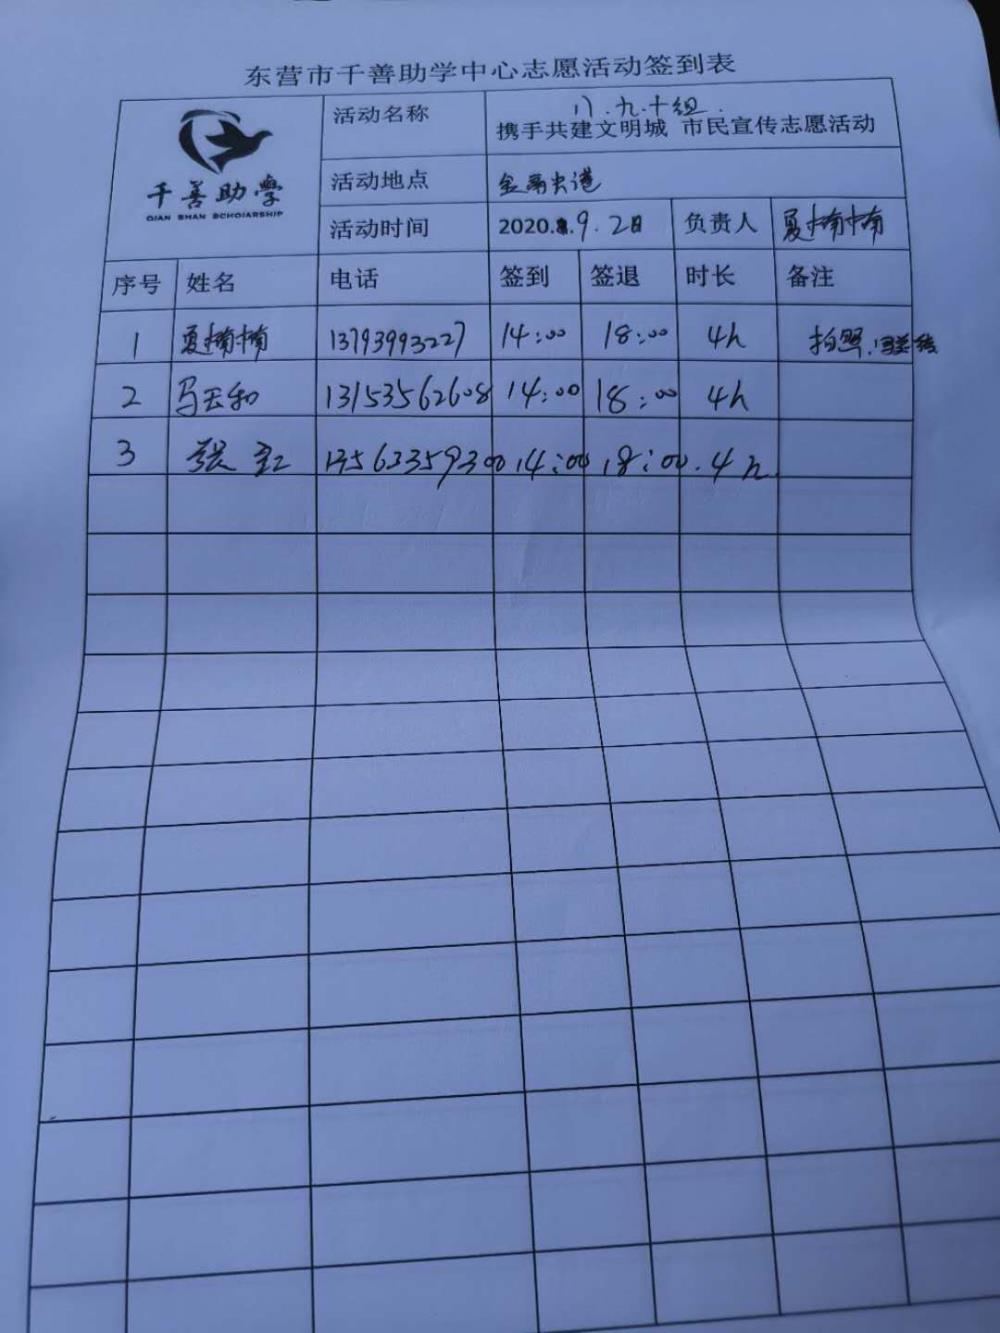 东营市千善助学中心志愿活动签到表
千善助學
QIAN SHAN SCHOLARSHIP
活动名称 八.九.十组.
携手共建文明城 市民宣传志愿活动
活动地点 街道
活动时间 2020. 9.2日 负责人 夏楠楠
序号 姓名 电话 签到 签退 时长 备注
1 夏楠楠 13793993227 14:00 18:00 4h 拍照.
2 马云和 13153562608 14:00 18:00 4h
3 张 14:00 18:00. 4h